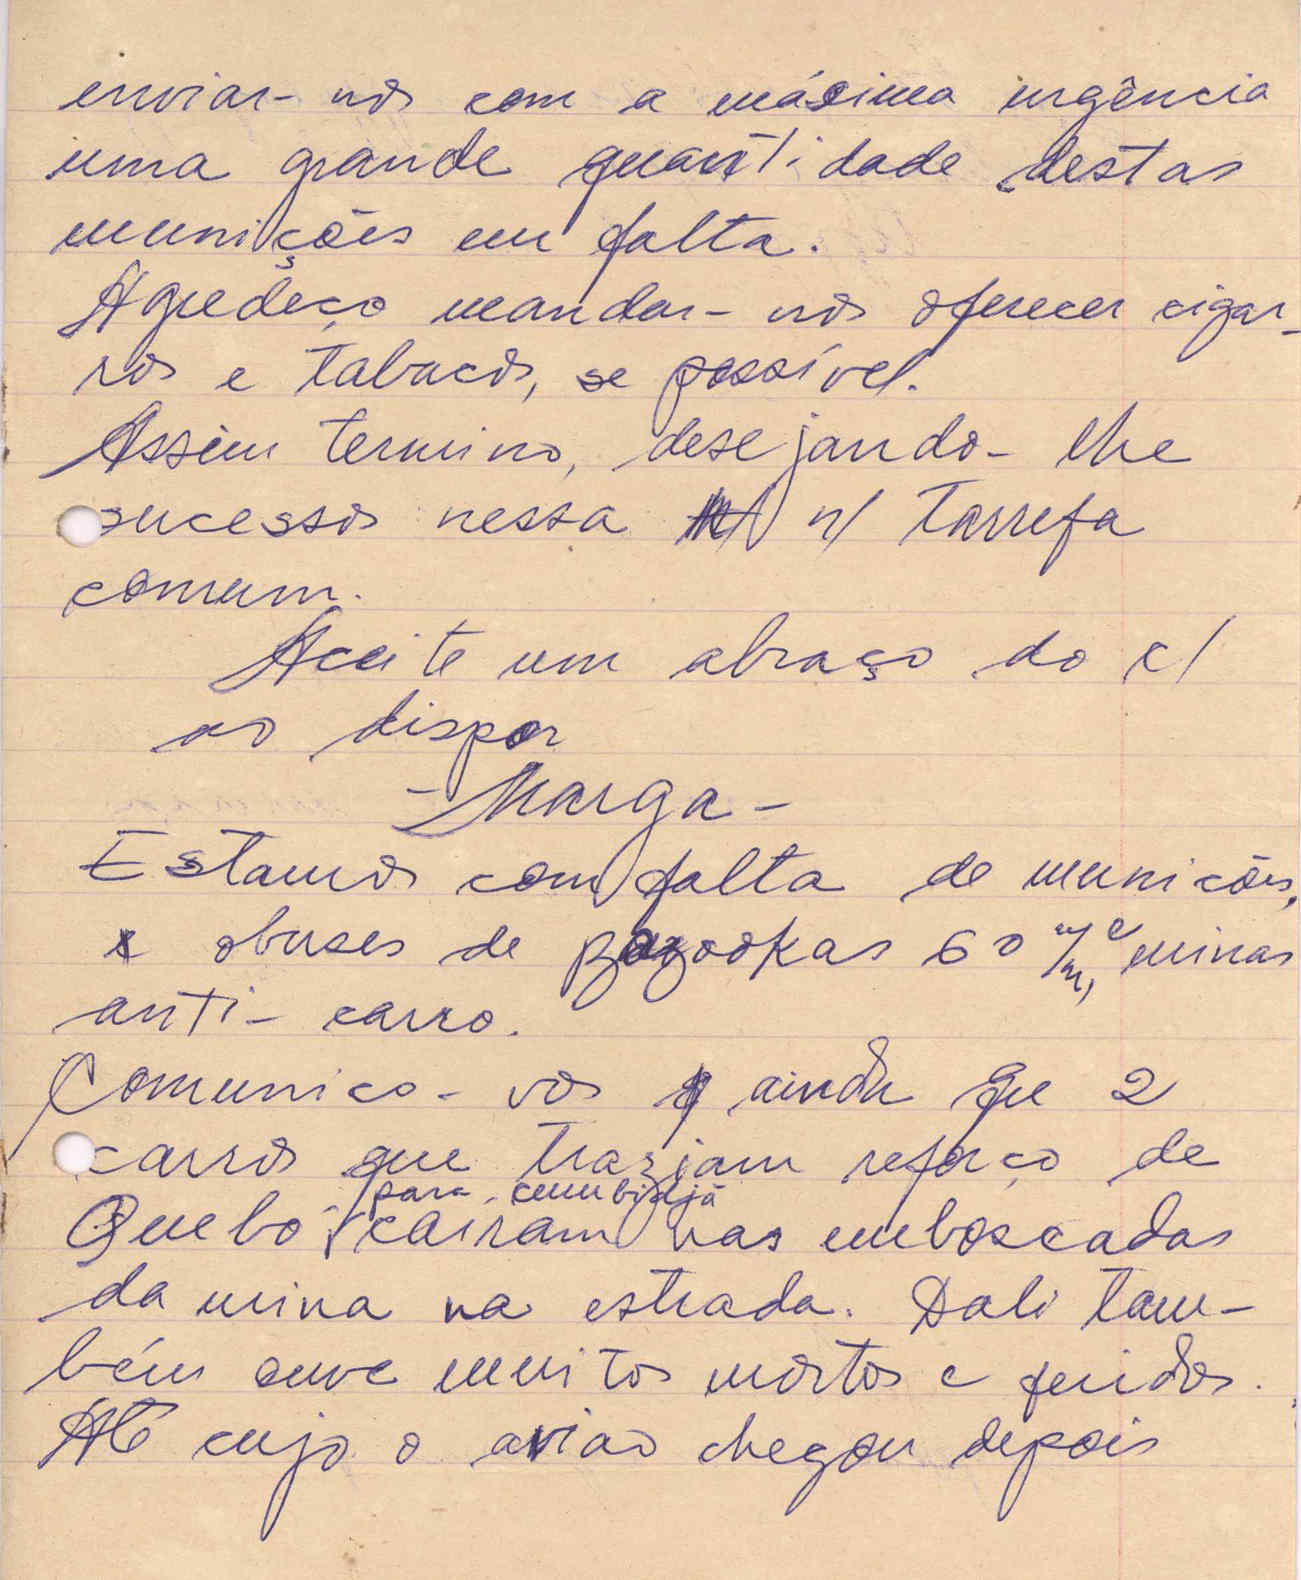 enviar-nos com a máxima urgência
uma grande quantidade destas
munições em falta.
Agredeço mandar-nos oferecer cigar-
ros e tabacos, se possível.
Assim termino, desejando-lhe
sucessos nessa n/ tarrefa
comum.
Aceite um abraço do c/
ao dispor
-Marga-
Estamos com falta de munições,
obuses de bazookas 60 m/m, e minas
anti-carro.
Comunico-vos ainda qe 2
carros que traziam reforço de
Quebo para cumbidjã cairam nas emboscadas
da mina na estrada. Dali tam-
bém ouve muitos mortos e feridos.
Até cujo o avião chegou depois